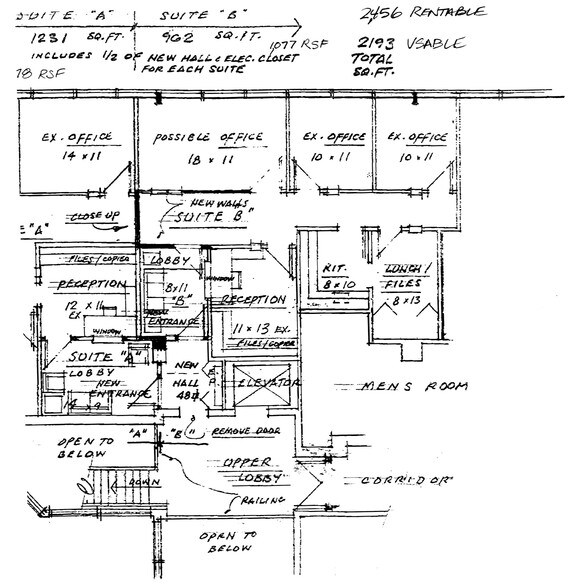 SUITE "A" SUITE "B"
1231 SQ.FT. 962 SQ.FT.
1077 RSF
INCLUDES 1/2 OF NEW HALL & ELEC. CLOSET
FOR EACH SUITE
78 RSF
2456 RENTABLE
2193 VSABLE
TOTAL
SQ.FT.
EX. OFFICE
14 x 11
POSSIBLE OFFICE
18 x 11
EX. OFFICE
10 x 11
EX. OFFICE
10 x 11
NEW WALLS
SUITE B"
CLOSE UP
E "A"
FILES/COPIER
RECEPTION
12 x 11
EX
WINDOW
LOBBY
8x11
"B"
ENTRANCE
WINDOW
RECEPTION
11 x 13 EX.
FILES/COPIER
KIT.
8 x 10
LUNCH/
FILES
8 x 13
SUITE "A"
LOBBY
NEW
ENTRANCE
14 x 9
NEW
HALL
48#
E
P
ELEVATOR
MENS ROOM
"A" "B"
REMOVE DOOR
OPEN TO
BELOW
UPPER
LOBBY
DOWN
RAILING
CORRIDOR
OPEN TO
BELOW